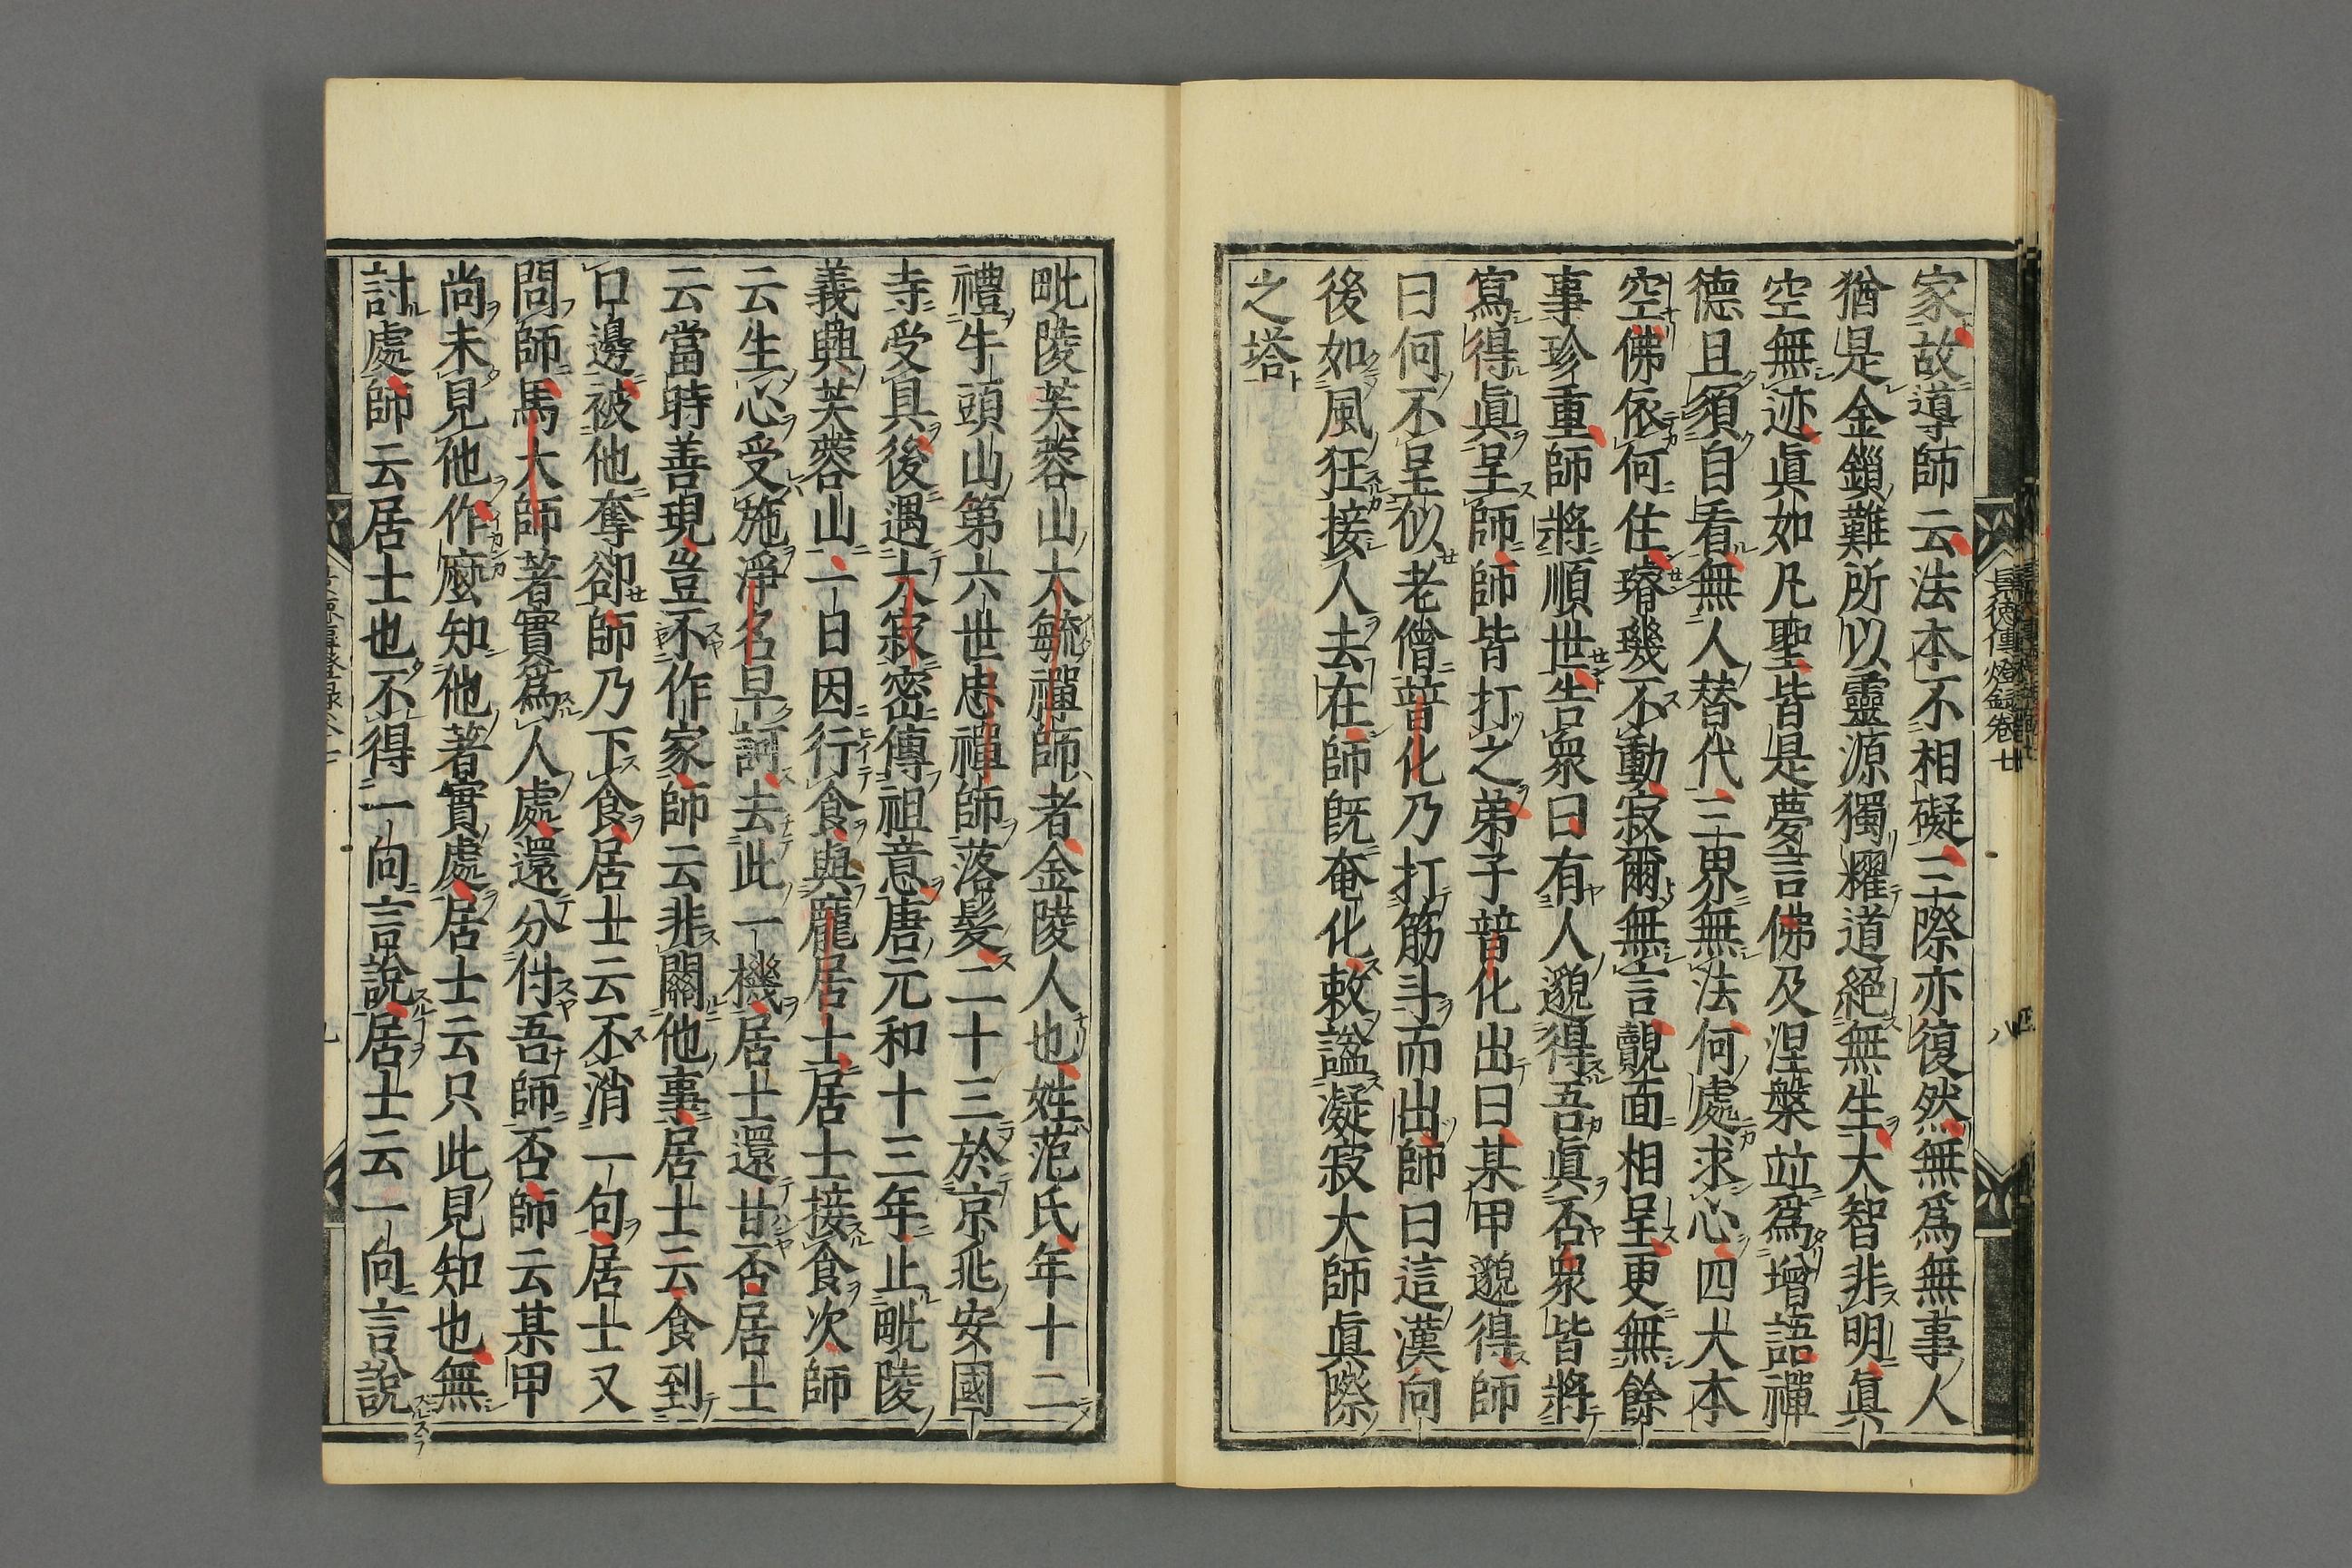 家故導師云法本不相礙三際亦復然無爲無事人
猶是金鎖難所以靈源獨耀道絕無生大智非明眞
空無迹眞如凡聖皆是夢言佛及涅槃竝爲增語禪
德且須自看無人替代三界無法何處求心四大本
空佛依何住璿璣不動寂爾無言覿面相呈更無餘
事珍重師將順世告衆曰有人邈得吾眞否衆皆將
寫得眞呈師師皆打之弟子普化出曰某甲邈得師
曰何不呈似老僧普化乃打筋斗而出師曰這漢向
後如風狂接人去在師旣奄化敕謚凝寂大師眞際
之塔
毗陵芙蓉山大毓禪師者金陵人也姓范氏年十二
禮牛頭山第六世忠禪師落髮二十三於京兆安國
寺受具後遇大寂密傳祖意唐元和十三年止毗陵
義興芙蓉山一日因行食與龐居士居士接食次師
云生心受施淨名早訶去此一機居士還甘否居士
云當時善現豈不作家師云非關他事居士云食到
口邊被他奪卻師乃下食居士云不消一句居士又
問師馬大師著實爲人處還分付吾師否師云某甲
尚未見他作麼知他著實處居士云只此見知也無
討處師云居士也不得一向言說居士云一向言說